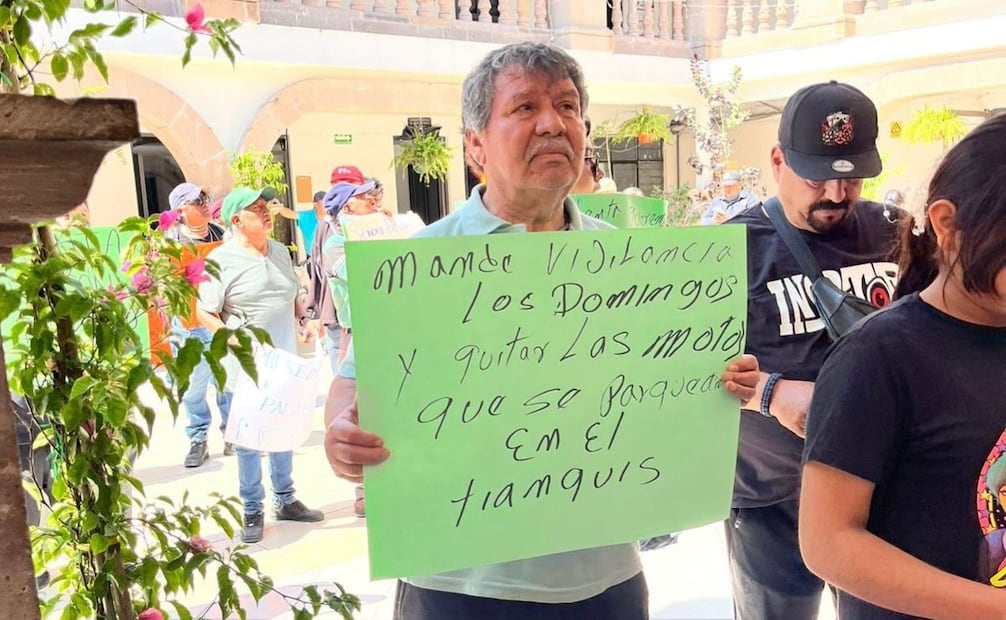 Mande Vijilancia
Los Domingos
y quitar Las motos
que se Parquean
En El
tianquis